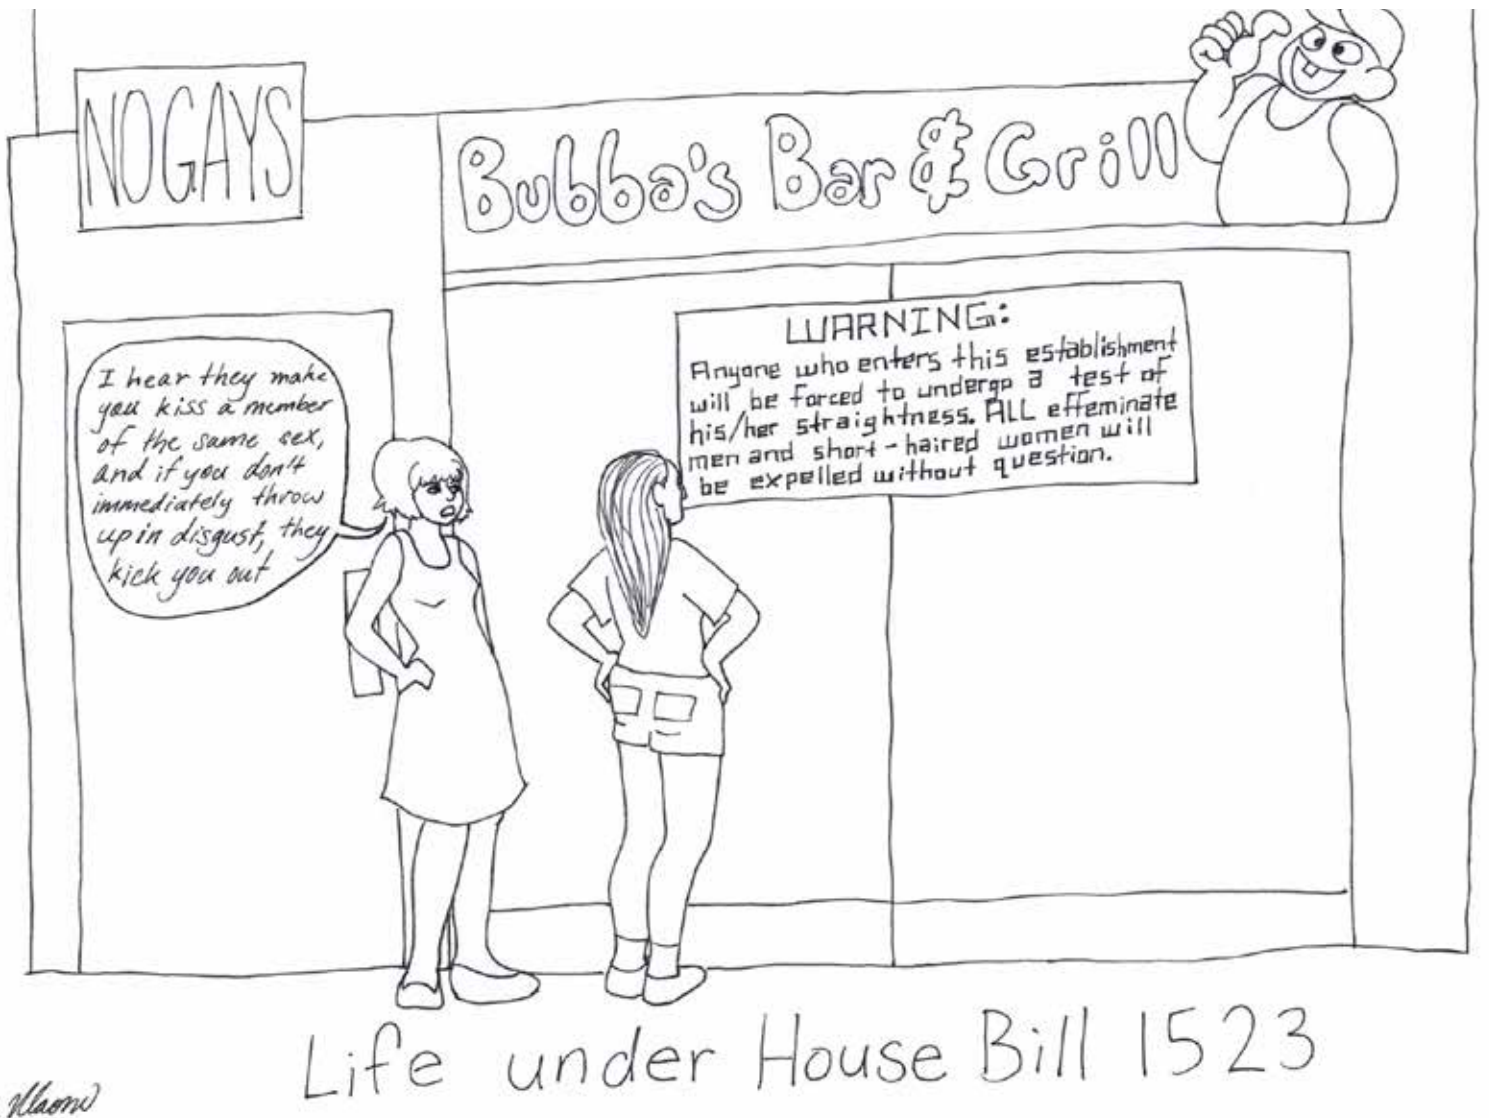 NO GAYS
Bubba's Bar & Grill
WARNING:
Anyone who enters this establishment
will be forced to undergo a test of
his/her straightness. ALL effeminate
men and short-haired women will
be expelled without question.
I hear they make
you kiss a member
of the same sex,
and if you don't
immediately throw
up in disgust, they
kick you out
Life under House Bill 1523